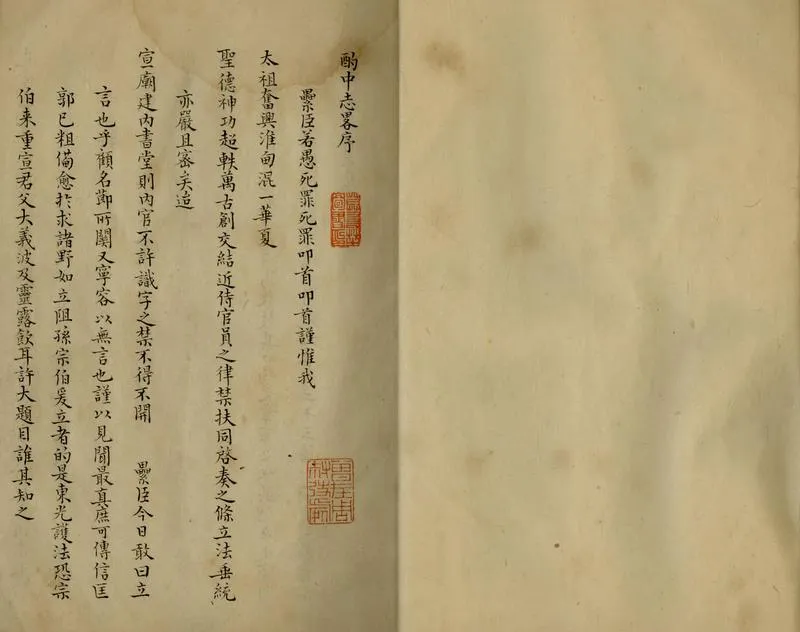 酌中志畧序
纍臣若愚死罪死罪叩首叩首謹惟我
太祖奮興淮甸混一華夏
聖德神功超軼萬古創交結近侍官員之律禁扶同啓奏之條立法垂統
亦嚴且密矣迨
宣廟建內書堂則內官不許識字之禁不得不開 纍臣今日敢曰立
言也乎顧名節所關又寧容以無言也謹以見聞最真庶可傳信匡
郭已粗備愈於求諸野如立阻孫宗伯爰立者的是東光護法恐宗
伯来重宣君父大義波及靈露飲耳許大題目誰其知之